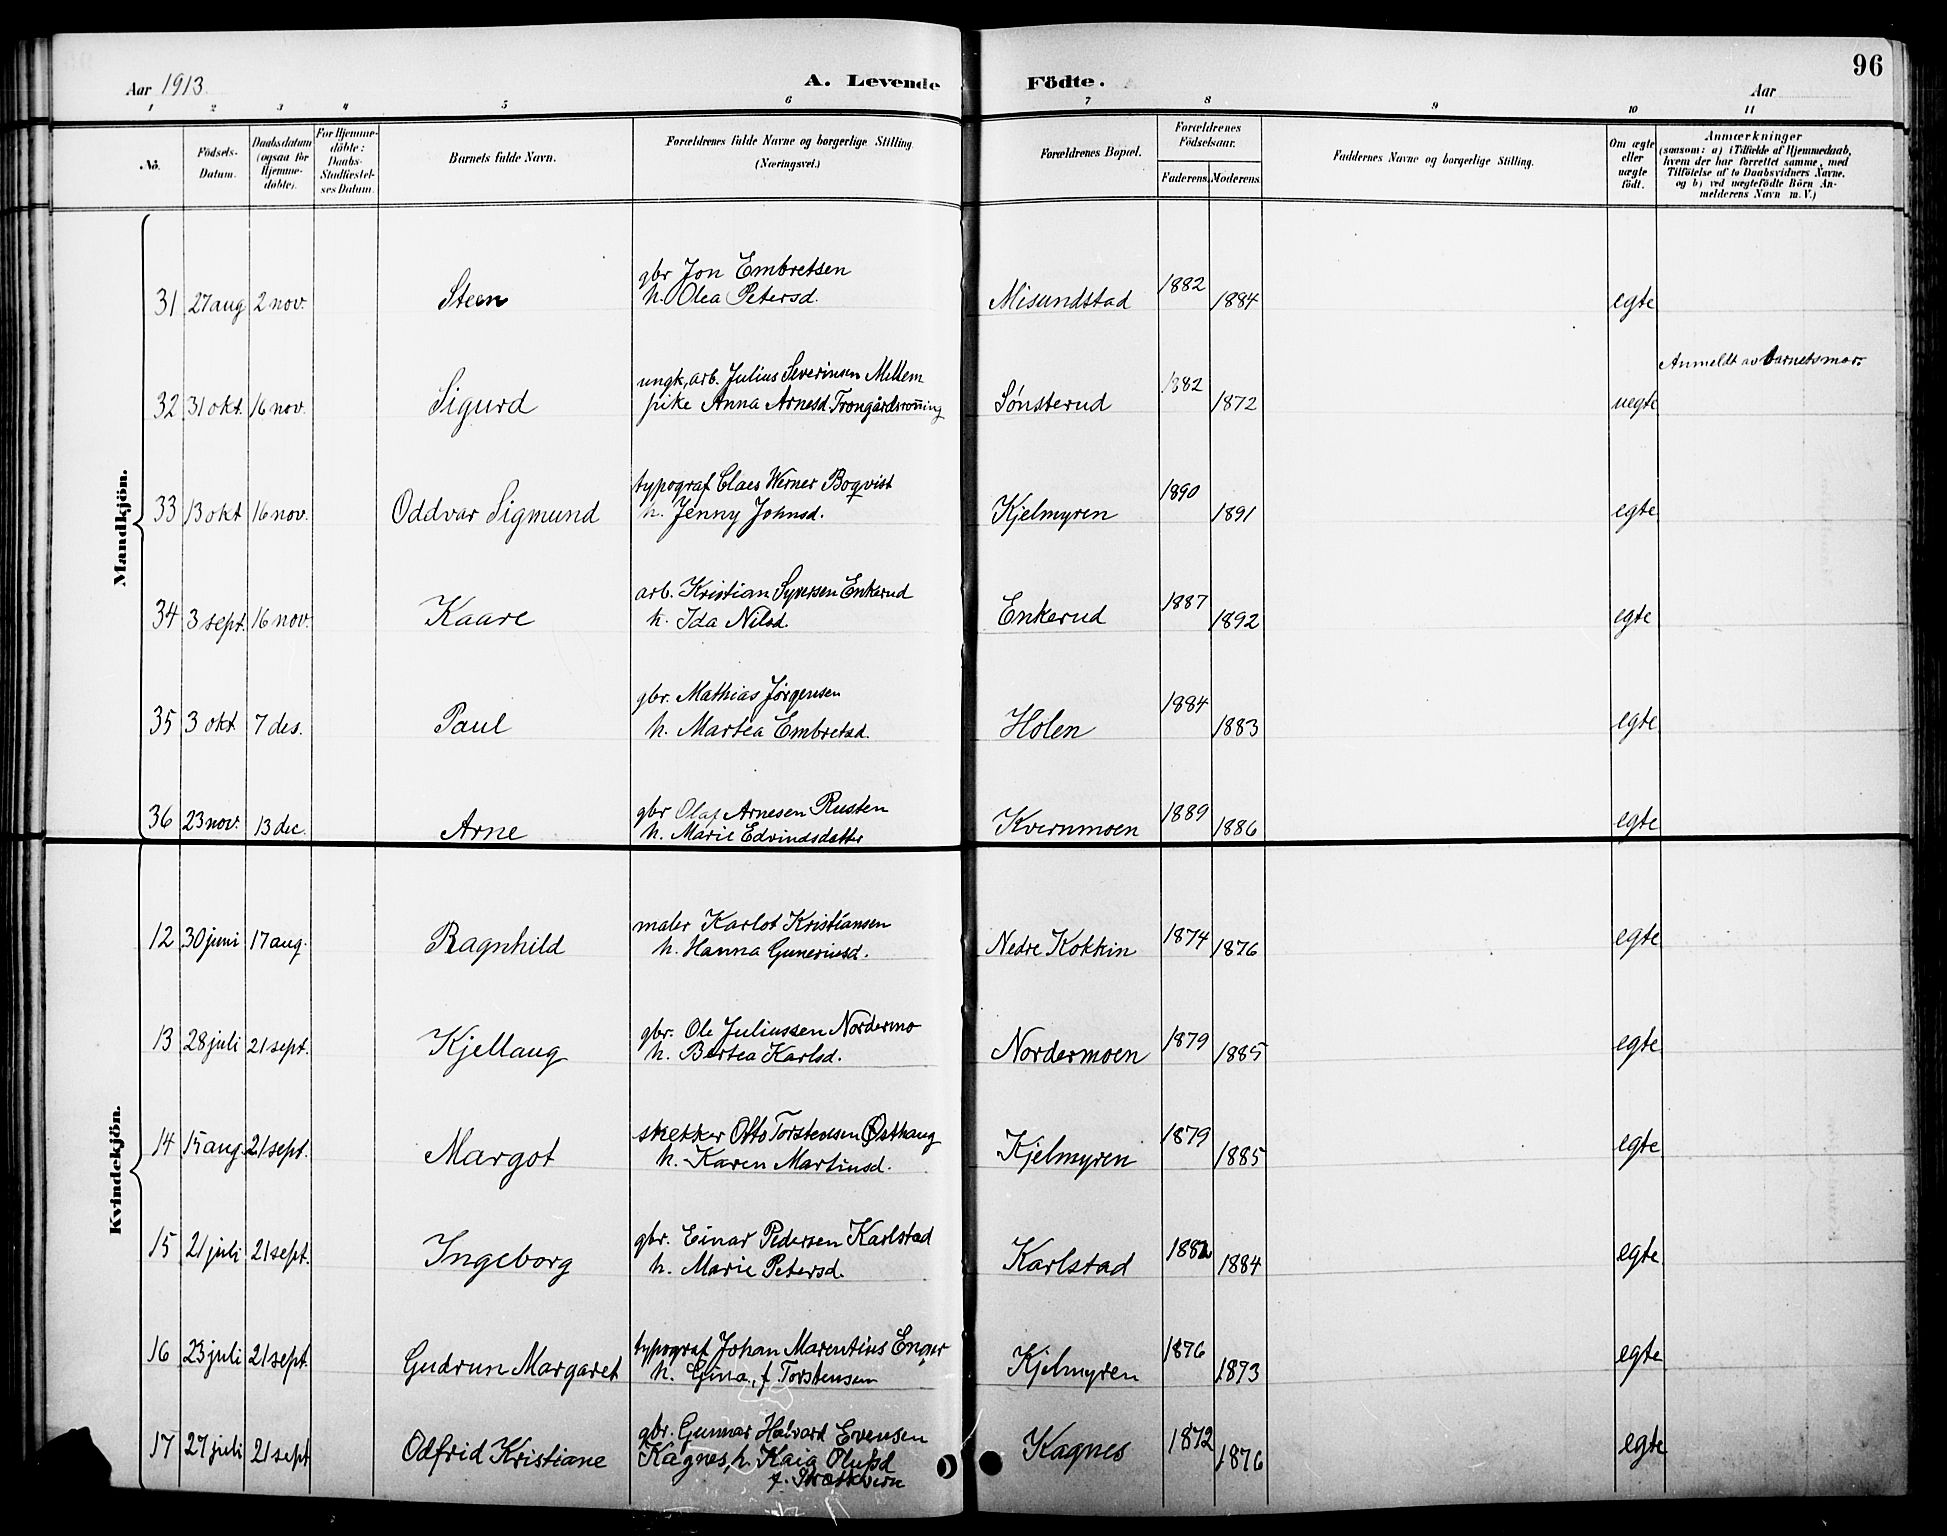 Aar 1913
A. Levende Födte.
Aar
96
1 2 3 4 5 6 7 8 9 10 11
No.
Födsels-
Datum.
Daabsdatum
(ogsaa for
Hjemme-
döbte).
For Hjemme-
döbte:
Daabs-
Stadfæstel-
ses Datum.
Barnets fulde Navn.
Forældrenes fulde Navne og borgerlige Stilling.
(Næringsvei.)
Forældrenes Bopæl.
Forældrenes
Födselsaar.
Faderens. Moderens.
Faddernes Navne og borgerlige Stilling.
Om ægte
eller
uægte
födt.
Anmærkninger
(saasom: a) i Tilfælde af Hjemmedaab,
hvem der har forrettet samme, med
Tilföielse af to Daabsvidners Navne.
og b) ved uægtefödte Börn An-
melderens Navn m. V.)
Mandkjön.
31 27 aug 2 nov. Steen gbr Jon Embretsen
h. Olea Petersd. Misundstad 1882 1884 egte
32 31 okt. 16 nov. Sigurd ungk, arb. Julius Severinsen Mellem
pike Anna Arnesd. Trongårdsrønning Sønsterud 1882 1872 uegte Anmeldt av barnets mor.
33 13 okt 16 nov. Oddvar Sigmund typograf Claes Werner Boqvist
h. Jenny Johnsd. Kjelmyren 1890 1891 egte
34 3 sept. 16 nov. Kaare arb. Kristian Syversen Enkerud
h. Ida Nilsd. Enkerud 1887 1892 egte
35 3 okt. 7 des. Paul gbr. Mathias Jørgensen
h. Martea Embretsd. Holen 1884 1883 egte
36 23 nov. 13 dec. Arne gbr Olaf Arnesen Rusten
h. Marie Edvindsdatter Kvernmoen 1889 1886 egte
Kvindekjön.
12 30 juni 17 aug. Ragnhild maler Karlot Kristiansen
h. Hanna Guneriusd. Nedre Kokkin 1874 1876 egte
13 28 juli 21 sept. Kjellaug gbr. Ole Juliussen Nordermo
h. Bertea Karlsd. Nordermoen 1879 1885 egte
14 15 aug. 21 sept. Margot snekker Otto Torstensen Østhaug
h. Karen Martinsd. Kjelmyren 1879 1885 egte
15 21 juli 21 sept. Ingeborg gbr. Einar Pedersen Karlstad
h. Marie Petersd. Karlstad 1882 1884 egte
16 23 juli 21 sept. Gudrun Margaret typograf Johan Marentius Enger
h. Gina, f. Torstensen Kjelmyren 1876 1873 egte
17 27 juli 21 sept Odfrid Kristiane gbr. Gunnar Halvard Evensen
Kagnes, h. Kaia Olufsd
f. Kagnes 1872 1876 egte